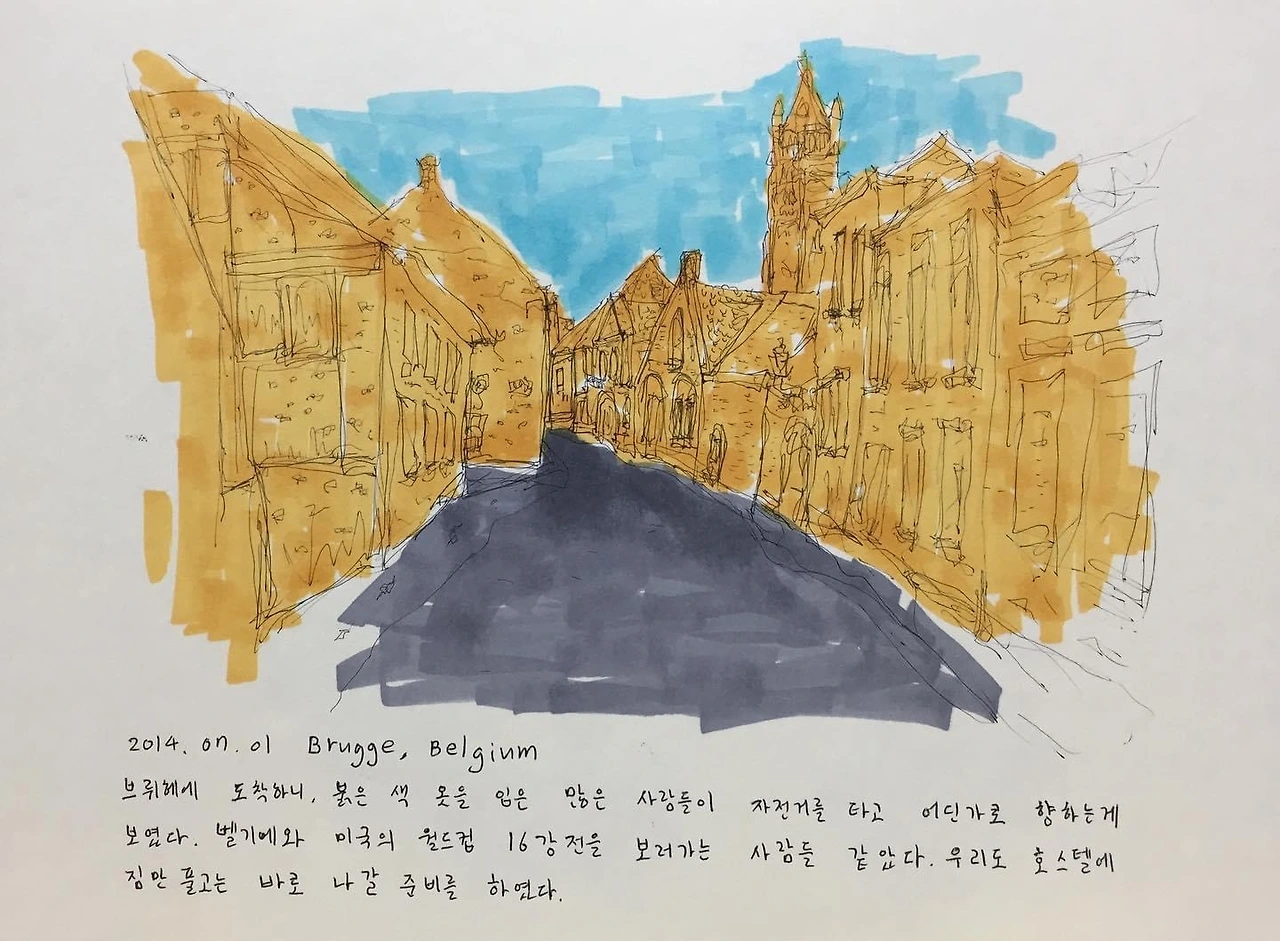 2014. 07. 01 Brugge, Belgium
브뤼헤에 도착하니, 붉은 색 옷을 입은 많은 사람들이 자전거를 타고 어딘가로 향하는게
보였다. 벨기에와 미국의 월드컵 16강전을 보러가는 사람들 같았다. 우리도 호스텔에
짐만 풀고는 바로 나갈 준비를 하였다.